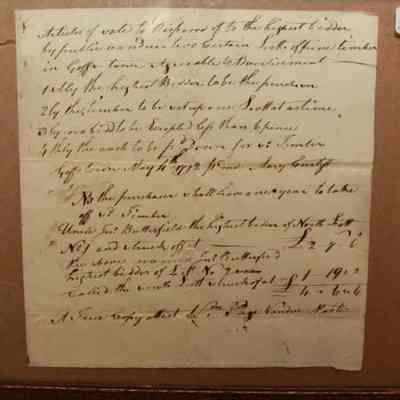 Articles of sale to Dispose of to the highest bidder
by publick vandue two certain Lotts of pine timber
in Goffstown Agreeable to Advertisement
1stly the highest Bidder to be the purcheser
2ly the timber to be set up one Lott at a time
3ly no bid to be Excepted Less than 6 pence
4thly the cash to be pd Down for sd Timber
Goffstown May 4th 1792
NB the purchaser shall have one year to take
off sd Timber
Butterfield the highest bidder of North Lott
No 1 and struck off at £ 2 7 6
the above named Butterfield
highest bidder of Lott No 2
called the south Lott struck of at £ 1 19
£ 4 6 6
A True copy attest Page Vandue Master